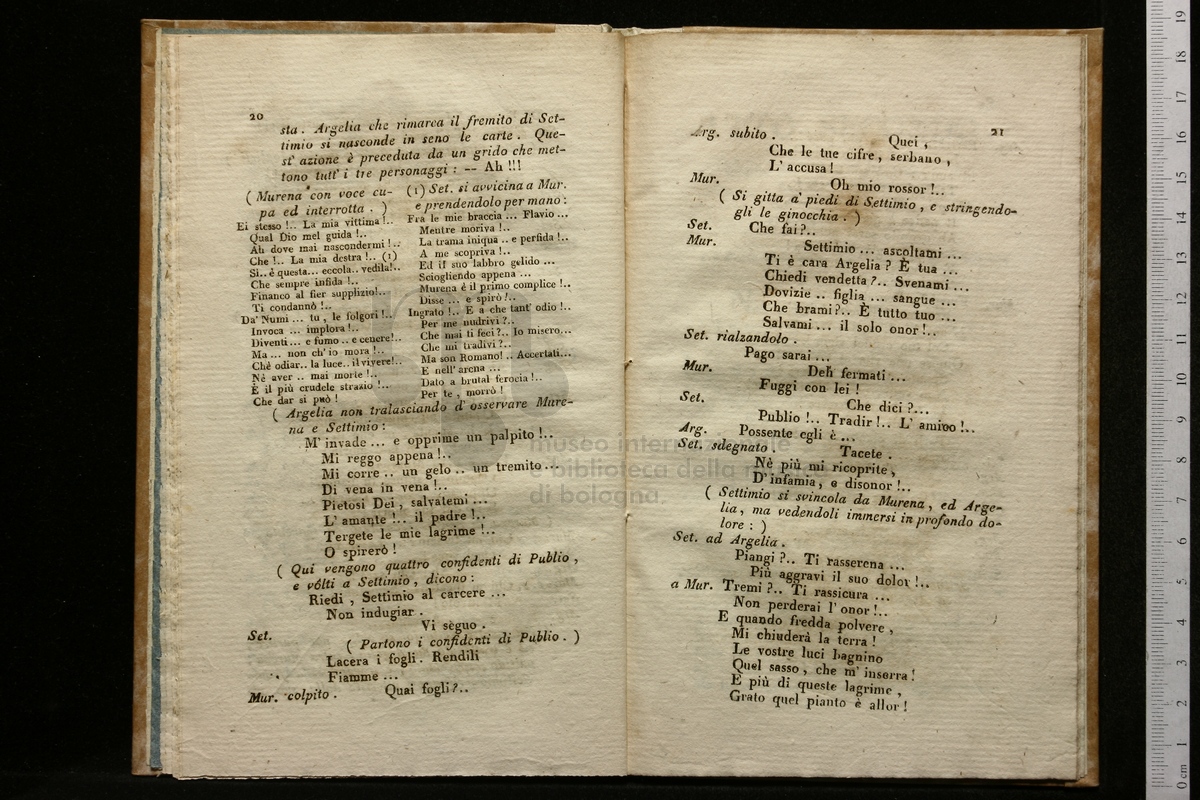 20
sta. Argelia che rimarca il fremito di Set-
timio si nasconde in seno le carte. Que-
st' azione è preceduta da un grido che met-
tono tutt' i tre personaggi : — Ah !!!
( Murena con voce cu-
pa ed interrotta. )
Ei stesso !.. La mia vittima !..
Qual Dio mel guida !..
Ah dove mai nascondermi !..
Che !.. La mia destra !.. (1)
Sì.. è questa... eccola.. vedila!..
Che sempre infida !..
Financo al fier supplizio!..
Ti condannò !..
Da' Numi ... tu, le folgori !..
Invoca ... implora !..
Diventi... e fumo .. e cenere!..
Ma ... non ch' io mora !..
Chè odiar.. la luce.. il vivere!..
Nè aver .. mai morte !..
È il più crudele strazio !..
Che dar si può !
(1) Set. si avvicina a Mur.
e prendendolo per mano :
Fra le mie braccia ... Flavio ...
Mentre moriva !..
La trama iniqua .. e perfida !..
A me scopriva !..
Ed il suo labbro gelido ...
Sciogliendo appena ...
Murena è il primo complice !..
Disse ... e spirò !..
Ingrato !.. E a che tant' odio !..
Per me nudrivi ?..
Che mai ti feci?.. Io misero...
Che mi tradivi ?..
Ma son Romano! .. Accertati...
E nell' arena ...
Dato a brutal ferocia !..
Per te, morrò !
( Argelia non tralasciando d' osservare Mure-
na e Settimio :
M' invade ... e opprime un palpito !..
Mi reggo appena !..
Mi corre .. un gelo .. un tremito ...
Di vena in vena !..
Pietosi Dei, salvatemi ...
L' amante !.. il padre !..
Tergete le mie lagrime !..
O spirerò !
( Qui vengono quattro confidenti di Publio,
e vôlti a Settimio, dicono :
Riedi, Settimio al carcere ...
Non indugiar.
Set. Vi sèguo.
( Partono i confidenti di Publio. )
Lacera i fogli. Rendili
Fiamme ...
Mur. colpito. Quai fogli ?..
21
Arg. subito. Quei,
Che le tue cifre, serbano,
L' accusa !
Mur. Oh mio rossor !..
( Si gitta a' piedi di Settimio, e stringendo-
gli le ginocchia. )
Set. Che fai ?..
Mur. Settimio ... ascoltami ...
Ti è cara Argelia ? È tua ...
Chiedi vendetta ?.. Svenami ...
Dovizie .. figlia ... sangue ...
Che brami ?.. È tutto tuo ...
Salvami ... il solo onor !..
Set. rialzandolo.
Pago sarai ...
Mur. Deh fermati ...
Fuggi con lei !
Set. Che dici ?...
Publio !.. Tradir !.. L' amico !..
Arg. Possente egli è ...
Set. sdegnato. Tacete.
Nè più mi ricoprite,
D' infamia, e disonor !..
( Settimio si svincola da Murena, ed Arge-
lia, ma vedendoli immersi in profondo do-
lore : )
Set. ad Argelia.
Piangi ?.. Ti rasserena ...
Più aggravi il suo dolor !..
a Mur. Tremi ?.. Ti rassicura ...
Non perderai l' onor !..
E quando fredda polvere,
Mi chiuderà la terra !
Le vostre luci bagnino
Quel sasso, che m' inserra !
E più di queste lagrime,
Grato quel pianto è allor !
museo internazionale
e biblioteca della musica
di bologna
0 cm 1 2 3 4 5 6 7 8 9 10 11 12 13 14 15 16 17 18 19